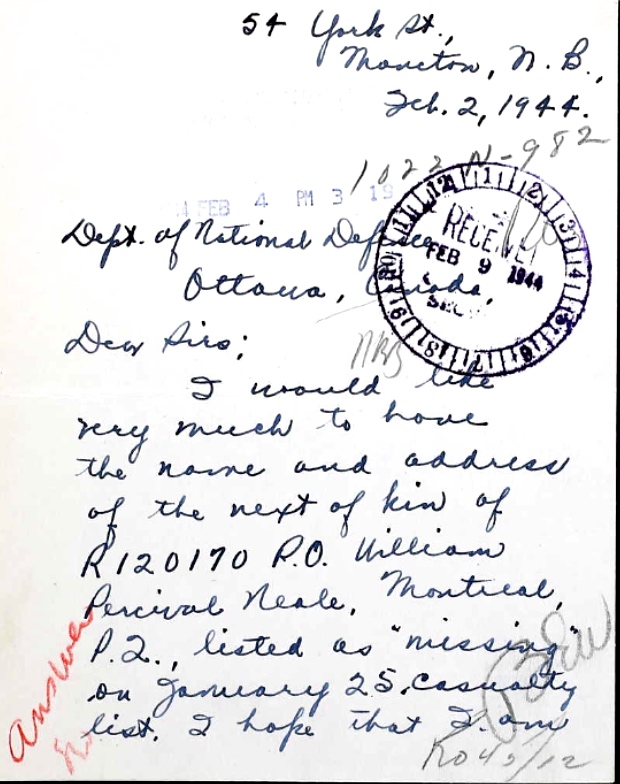 54 York St.,
Moncton, N. B.,
Feb. 2, 1944.
1022 N-982
FEB 4 PM 3 19
Dept. of National Defence
Ottawa, Canada,
12 1 2 3 4 5 6 7 8 9 10 11
RECEIVED
FEB 9 1944
Dear Sirs;
I would like
very much to have
the name and address
of the next of kin of
R120170 P.O. William
Percival Neale, Montreal,
P.Q., listed as "missing"
on January 25. casualty
list. I hope that I am
Answer